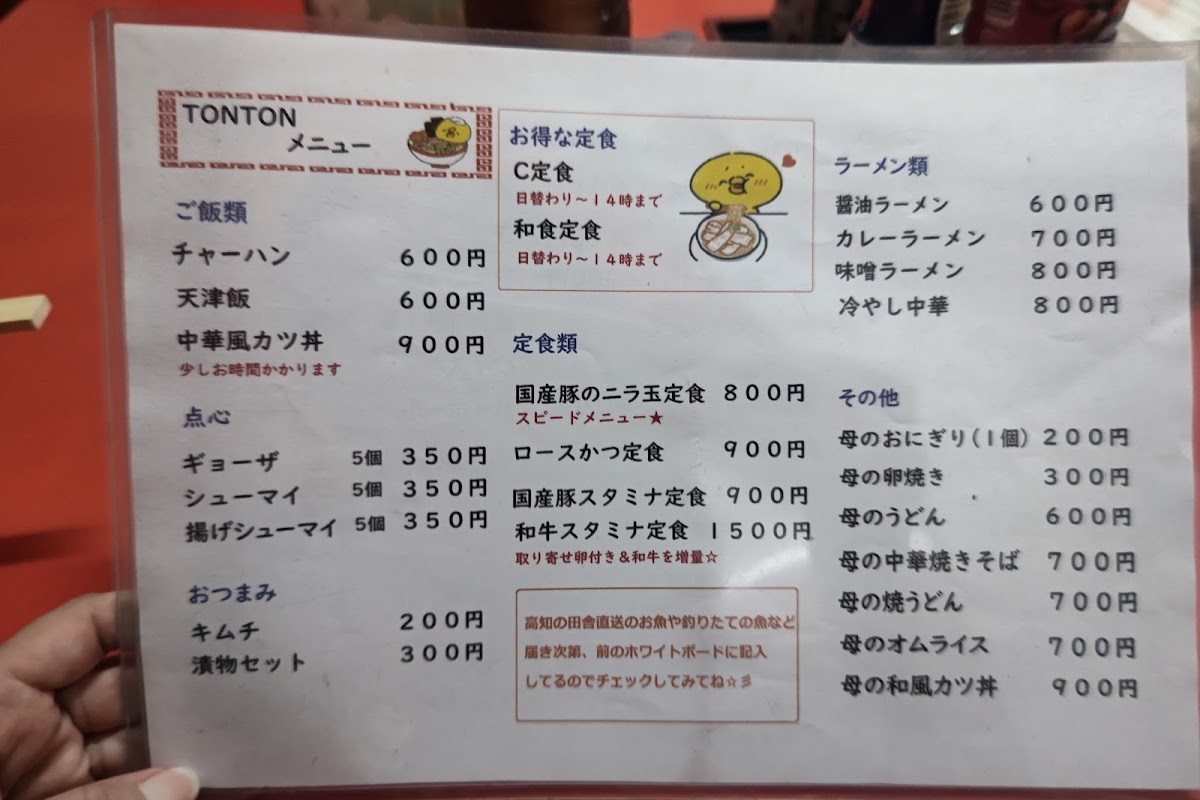 TONTON
メニュー
ご飯類
チャーハン 600円
天津飯 600円
中華風カツ丼 900円
少しお時間かかります
点心
ギョーザ 5個 350円
シューマイ 5個 350円
揚げシューマイ 5個 350円
おつまみ
キムチ 200円
漬物セット 300円
お得な定食
C定食
日替わり～14時まで
和食定食
日替わり～14時まで
定食類
国産豚のニラ玉定食 800円
スピードメニュー★
ロースかつ定食 900円
国産豚スタミナ定食 900円
和牛スタミナ定食 1500円
取り寄せ卵付き＆和牛を増量☆
高知の田舎直送のお魚や釣りたての魚など
届き次第、前のホワイトボードに記入
してるのでチェックしてみてね☆彡
ラーメン類
醤油ラーメン 600円
カレーラーメン 700円
味噌ラーメン 800円
冷やし中華 800円
その他
母のおにぎり(1個) 200円
母の卵焼き 300円
母のうどん 600円
母の中華焼きそば 700円
母の焼うどん 700円
母のオムライス 700円
母の和風カツ丼 900円